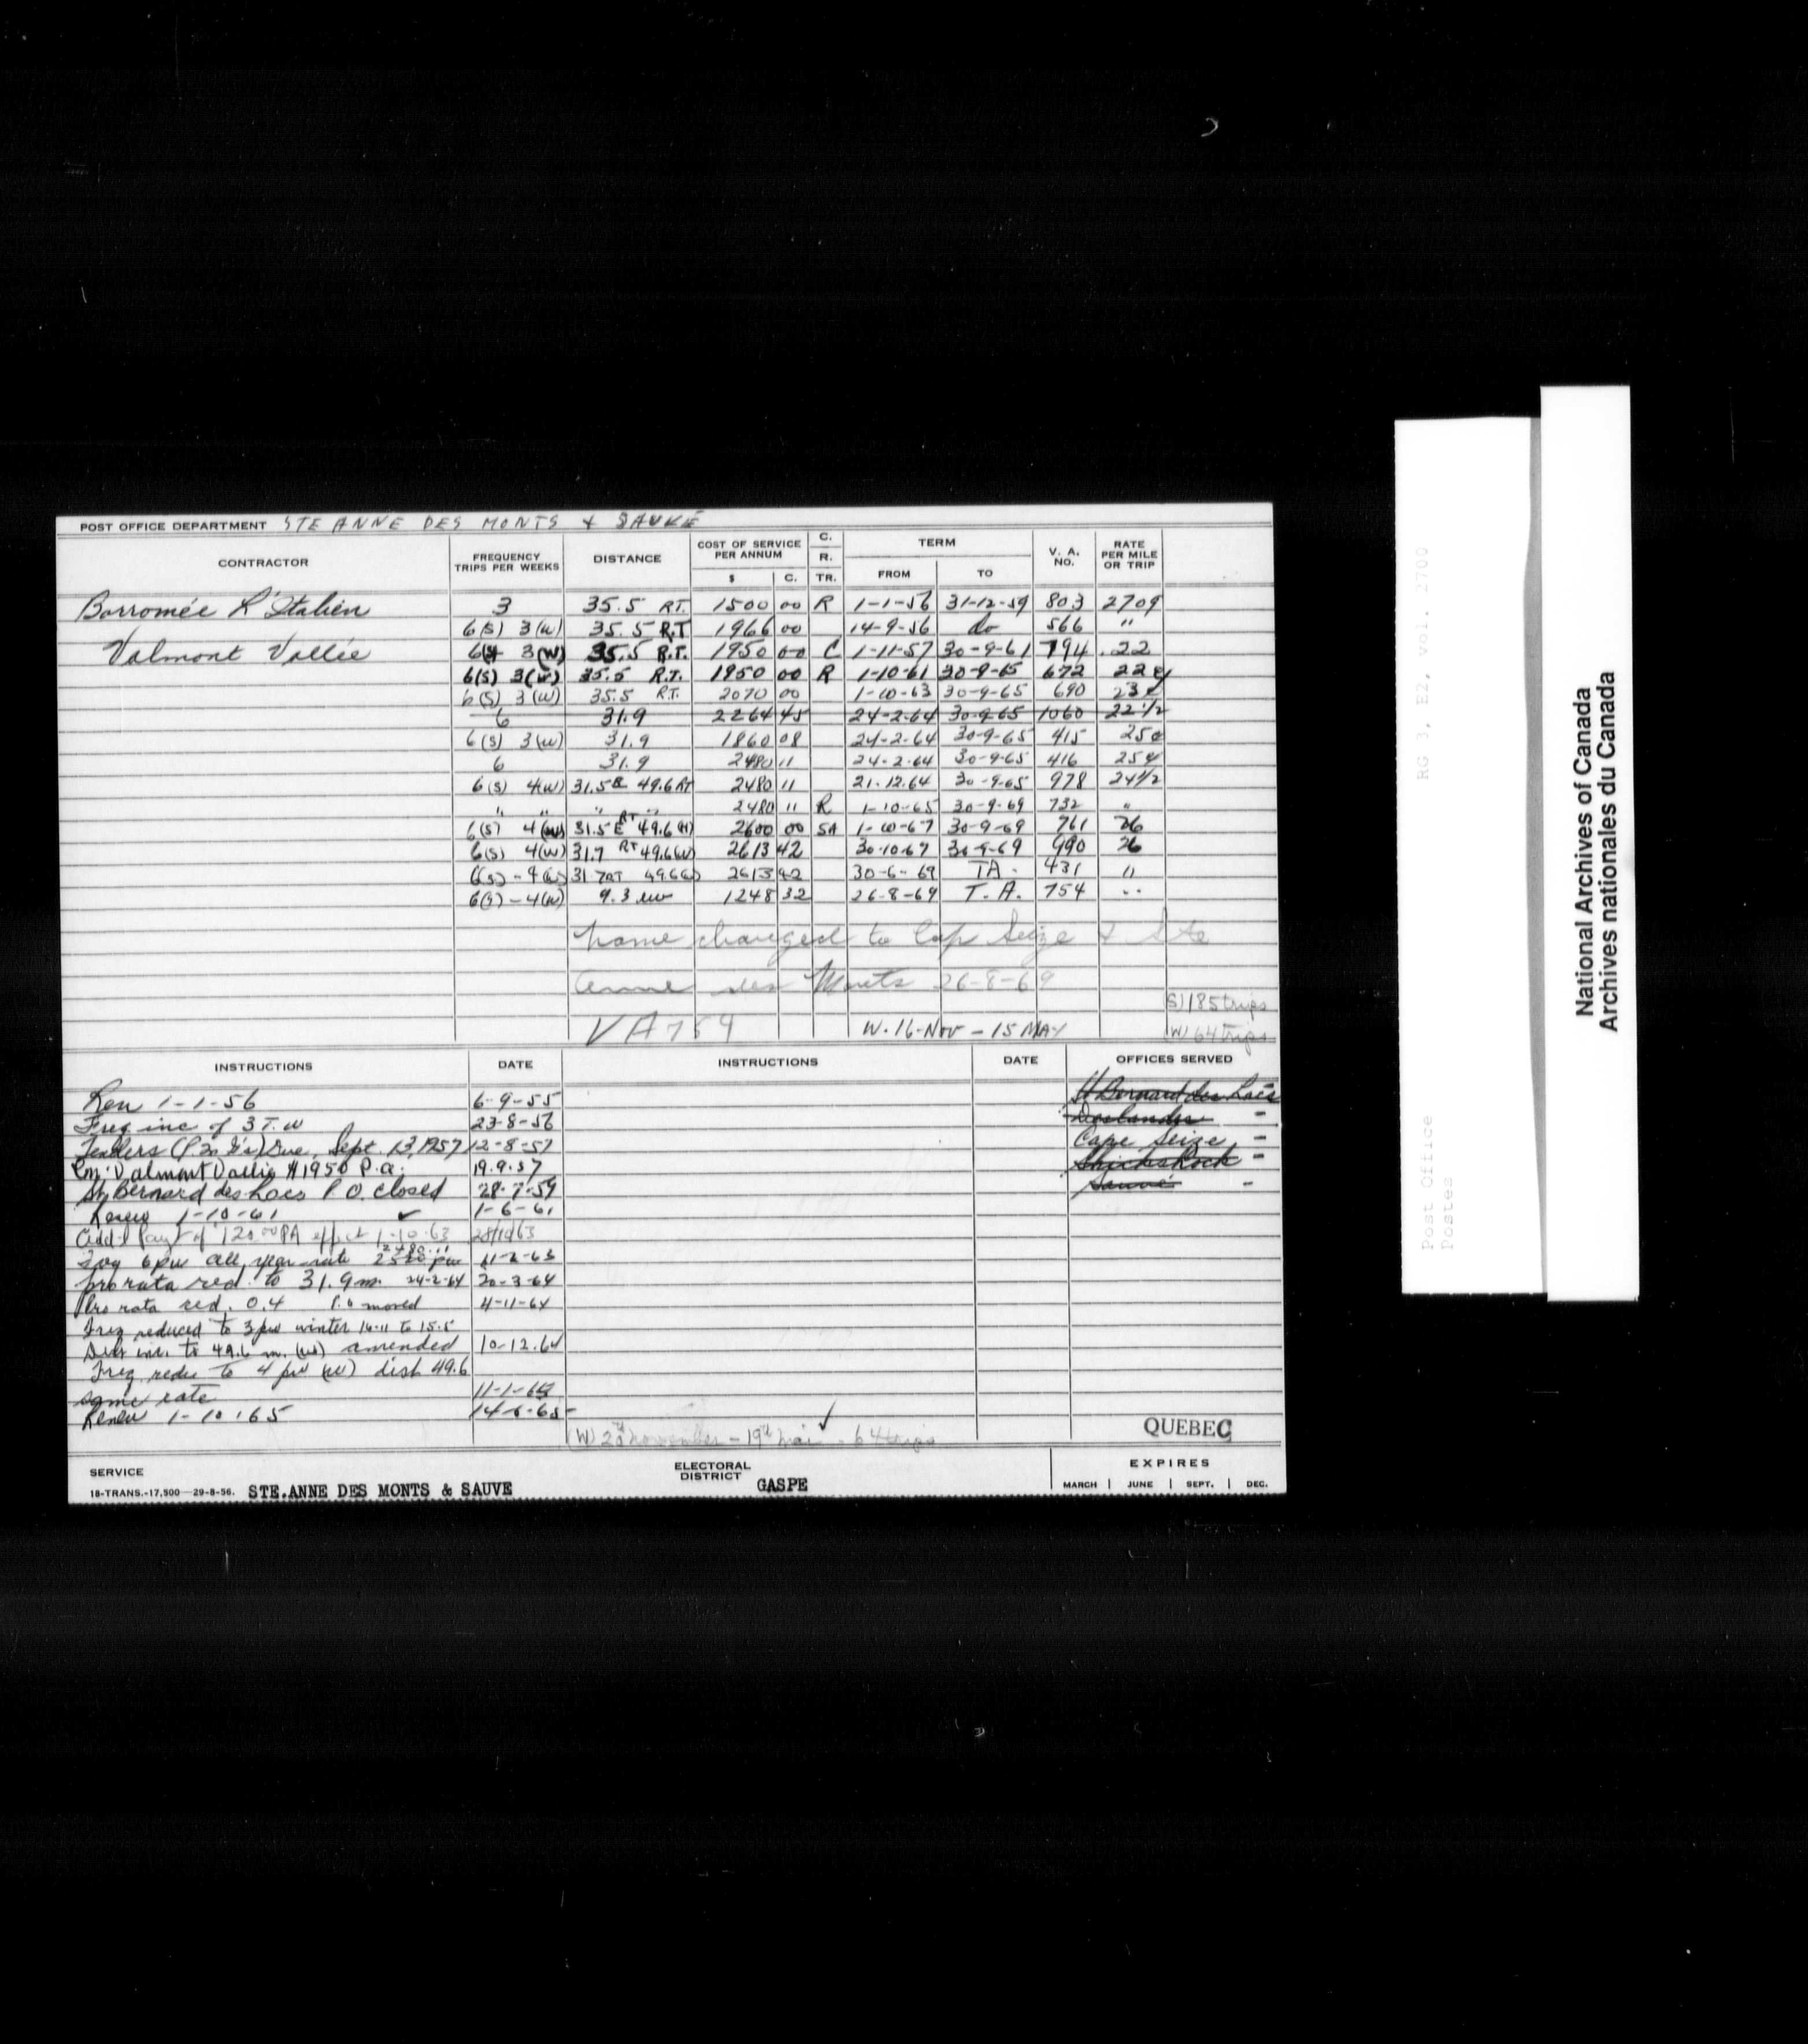 POST OFFICE DEPARTMENT STE ANNE DES MONTS & SAUVÉ
CONTRACTOR FREQUENCY TRIPS PER WEEKS DISTANCE COST OF SERVICE PER ANNUM $ C. C. R. TR. TERM FROM TO V. A. NO. RATE PER MILE OR TRIP
Borromée L'Italien 3 35.5 RT. 1500 00 R 1-1-56 31-12-59 803 2709
6(S) 3(W) 35.5 R.T 1966 00 14-9-56 do 566 "
Valmont Vallée 6(S) 3(W) 35.5 R.T. 1950 00 C 1-11-57 30-9-61 794 .22
6(S) 3(W) 35.5 R.T. 1950 00 R 1-10-61 30-9-65 672 22¢
6(S) 3(W) 35.5 R.T. 2070 00 1-10-63 30-9-65 690 23¢
6 31.9 2264 45 24-2-64 30-9-65 1060 22 1/2
6(S) 3(W) 31.9 1860 08 24-2-64 30-9-65 415 25¢
6 31.9 2480 11 24-2-64 30-9-65 416 25¢
6(S) 4(W) 31.5 E 49.6 RT 2480 11 21.12.64 30-9-65 978 24 1/2
" " " " 2480 11 R 1-10-65 30-9-69 732 "
6(S) 4(W) 31.5 E RT 49.6(W) 2600 00 SA 1-10-67 30-9-69 761 26
6(S) 4(W) 31.7 RT 49.6(W) 2613 42 30-10-67 30-9-69 990 26
6(S) - 4(W) 31.7 RT 49.6(W) 2613 42 30-6-69 TA. 431 "
6(S) - 4(W) 9.3 1248 32 26-8-69 T.A. 754 "
name changed to Cap Seize & Ste
Anne des Monts 26-8-69
(S) 185 trips
VA 754 W. 16-Nov - 15 MAY (W) 64 trips
INSTRUCTIONS DATE INSTRUCTIONS DATE OFFICES SERVED
Ren 1-1-56 6-9-55 St Bernard des Lacs
Freq inc of 3 T.W 23-8-56 Deslandes -
Tenders (P.20 's) Due, Sept. 13, 1957 12-8-57 Cape Seize -
Valmont Vallée $1950 P.a. 19.9.57 Shickshock -
St. Bernard des Lacs P.O. closed 28-7-59 Sauvé -
Renew 1-10-61 ✓ 1-6-61
Add'l Payt of 120.00 PA effect 1-10-63 28/10/63
6 pw all year rate 2480.11 11-2-63
pro rata red. to 31.9 m. 24-2-64 20-3-64
Pro rata red. 0.4 P.O moved 4-11-64
Freq reduced to 3 pw winter 16-11 to 15-5
Dist inc. to 49.6 m. (W) amended 10-12.64
Freq redu to 4 pw (W) dist 49.6
same rate 11-1-65
Renew 1-10-65 14-6-65-
(W) 20th November - 19th mai - 64 trips ✓
QUEBEC
SERVICE STE.ANNE DES MONTS & SAUVE ELECTORAL DISTRICT GASPE EXPIRES
18-TRANS.-17,500—29-8-56. MARCH | JUNE | SEPT. | DEC.
RG 3, E2, vol. 2700
Post Office
Postes
National Archives of Canada
Archives nationales du Canada